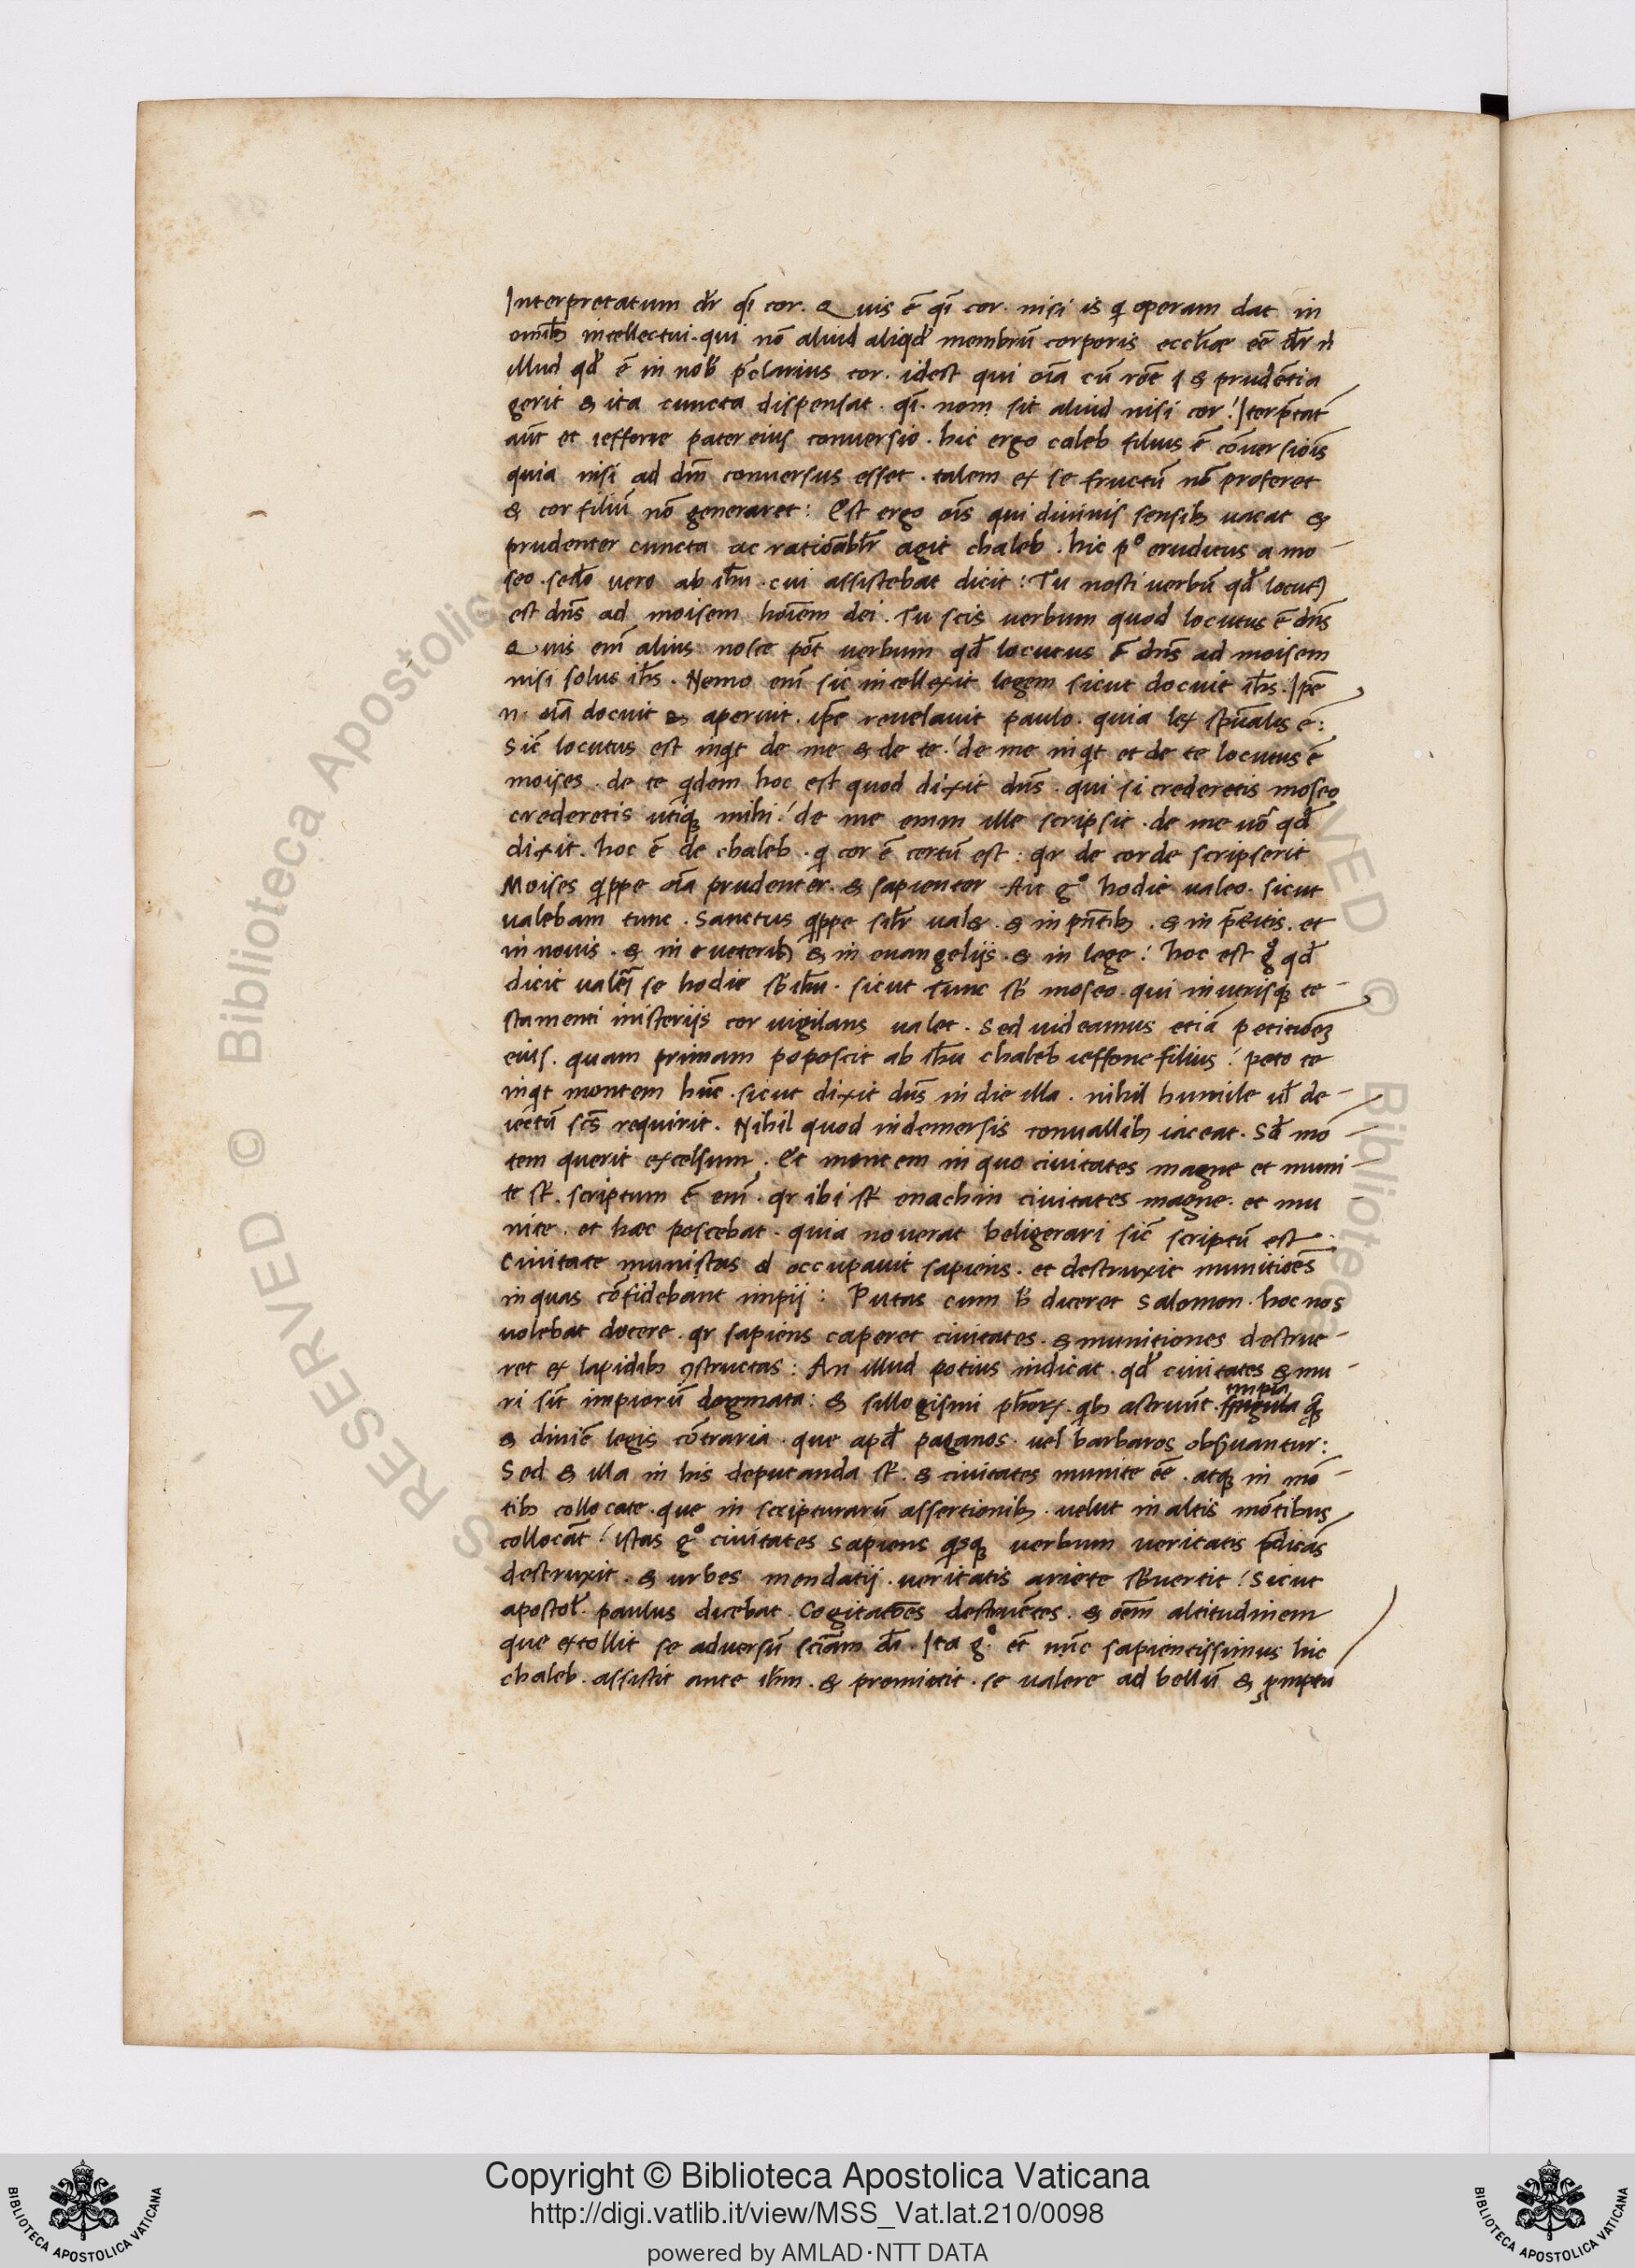 Interpretatum dr̄ qī cor. Quis ē qī cor. nisi is q operam dat in
omnib; intellectui. qui nō aliud aliqd membrū corporis ecclīæ eē dr̄ n̄
illud qd̄ ē in nob̄ p̄clarius cor. idest qui oīa cū rōe & prudētia
gerit & ita cuncta dispensat. qī. non sit aliud nisi cor! Iterp̄tat̄
aūt et ieffone pater eius conversio. hic ergo caleb filius ē cōversiōis
quia nisi ad dm̄ conversus esset. talem ex se fructū nō proferet
& cor filiū nō generaret: Est ergo oīs qui divinis sensib; uacat &
prudenter cuncta ac ratiōabīlr agit chaleb. hic pº eruditus a mo-
seo. sēdo vero ab ihū. cui assistebat dicit: Tu nosti verbū qd̄ locut9
est dn̄s ad moisem hoīem dei. Tu scis verbum quod locutus ē dn̄s
Quis em̄ alius nosce pōt verbum qd̄ locutus ē dn̄s ad moisem
nisi solus ihs̄. Nemo em̄ sic intellexit legem sicut docuit ihs̄. Ip̄e
n. oīa docuit & aperuit. ip̄e reuelauit paulo. quia lex spūalis ē:
Sic̄ locutus est inqt de me & de te! de me inqt et de te locutus ē
moises. de te qdem hoc est quod dixit dn̄s. qui si crederetis moseo
crederetis utiq; mihi! de me enim ille scripsit. de me uō qd̄
dixit. hoc ē de chaleb. q cor ē certū est: qr de corde scripserit
Moises qppe oīa prudenter. & sapienter Ait gº hodie ualeo. sicut
ualebam tunc. Sanctus qppe silr̄ ualet. & in p̄ntib;. & in p̄teitis. et
in novis. & in e ueterib; & in euangelijs. & in lege! hoc est g qd̄
dicit ualēe se hodie sb̄ ihū. sicut tunc sb̄ moseo. qui in utrisq; te-
stamenti misterijs cor uigilans ualet. Sed uideamus etiā petitiōeȝ
eius. quam primam poposcit ab ihū chaleb ieffone filius! peto te
inqt montem hūc. sicut dixit dn̄s in die illa. nihil humile ul̄ de-
iectū scs̄ requirit. Nihil quod indemersis conuallib; iaceat. Sd̄ mō-
tem querit excelsum. Et montem in quo civitates magne et muni-
te st̄. scriptum ē em̄. qr ibi st̄ enachin civitates magne. et mu-
nite. et hæc poscebat. quia noverat beligerari sic̄ scriptū est.
Civitate munistas d occupauit sapiens. et destruxit munitiōes
in quas cōfidebant impij: Putas cum h̄ diceret Salomon. hoc nos
uolebat docere. qr sapiens caperet civitates. & munitiones destrue-
ret ex lapidib; 9structas: An illud potius indicat. qd̄ civitates & mu-
ri sūt impiorū dogmata: & sillogismi ph̄orꝝ. qb; astruūt. impia q̄q;
& divie legis cōtraria. que apd̄ paganos. uel barbaros obs̄uantur:
Sed & illa in his deputanda st̄. & civitates munite eē. atq; in mō-
tib; collocate. que in scripturarū assertionib;. velut in altis mōtibus
collocāt! Istas gº civitates sapiens qsq; verbum veritatis p̄dicās
destruxit. & urbes mendatij. veritatis ariete sb̄vertit! Sicut
apostol̄. paulus dicebat. Cogitatōes destruētes. & oēm altitudinem
que extollit se adversū sciam di. Ita gº et̄ nūc sapientissimus hic
chaleb. assistit ante ihm. & promittit. se ualere ad bellū & pmptū
Copyright © Biblioteca Apostolica Vaticana
http://digi.vatlib.it/view/MSS_Vat.lat.210/0098
powered by AMLAD·NTT DATA